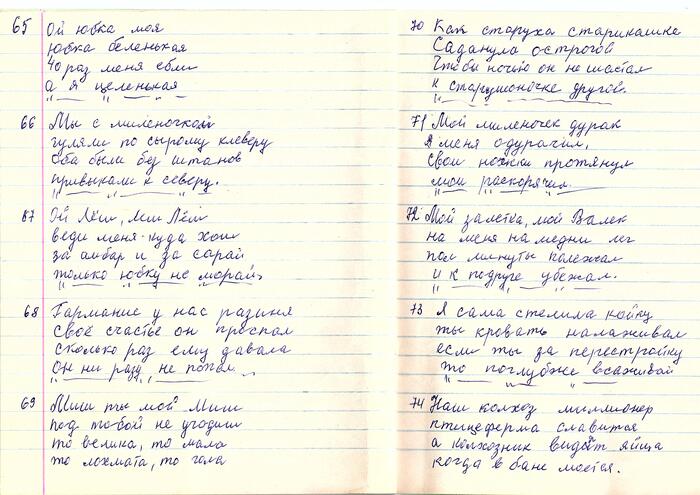 65 Ой юбка моя
юбка беленькая
40 раз меня ебли
а я целенькая
66 Мы с миленочкой
гуляли по сырому клеверу
Оба были без штанов
привыкали к северу.
87 Ой Лёш, Лёш
веди меня куда хош
за амбар и за сарай
только юбку не морай
68 Гармонист у нас разиня
своё счастье он проспал
сколько раз ему давала
Он ни разу не попал
69 Миш ты мой Миш
под тобой не угодиш
то велика, то мала
то лохмата, то гола
70 Как старуха старикашке
Саданула острогов
Чтобы ночью он не шастал
к старушоночке другов.
71 Мой миленочек дурак
и меня одурачил,
Свои ножки протянул
мои раскорячил.
72 Мой залетка, мой Валек
на меня намедни лег
пол минуты полежал
и к подруге убежал.
73 Я сама стелила койку
ты кровать налаживал
если ты за перестройку
то поглубже всаживай
74 Наш колхоз миллионер
птицеферма славится
а колхозник видит яйца
когда в бане моется.